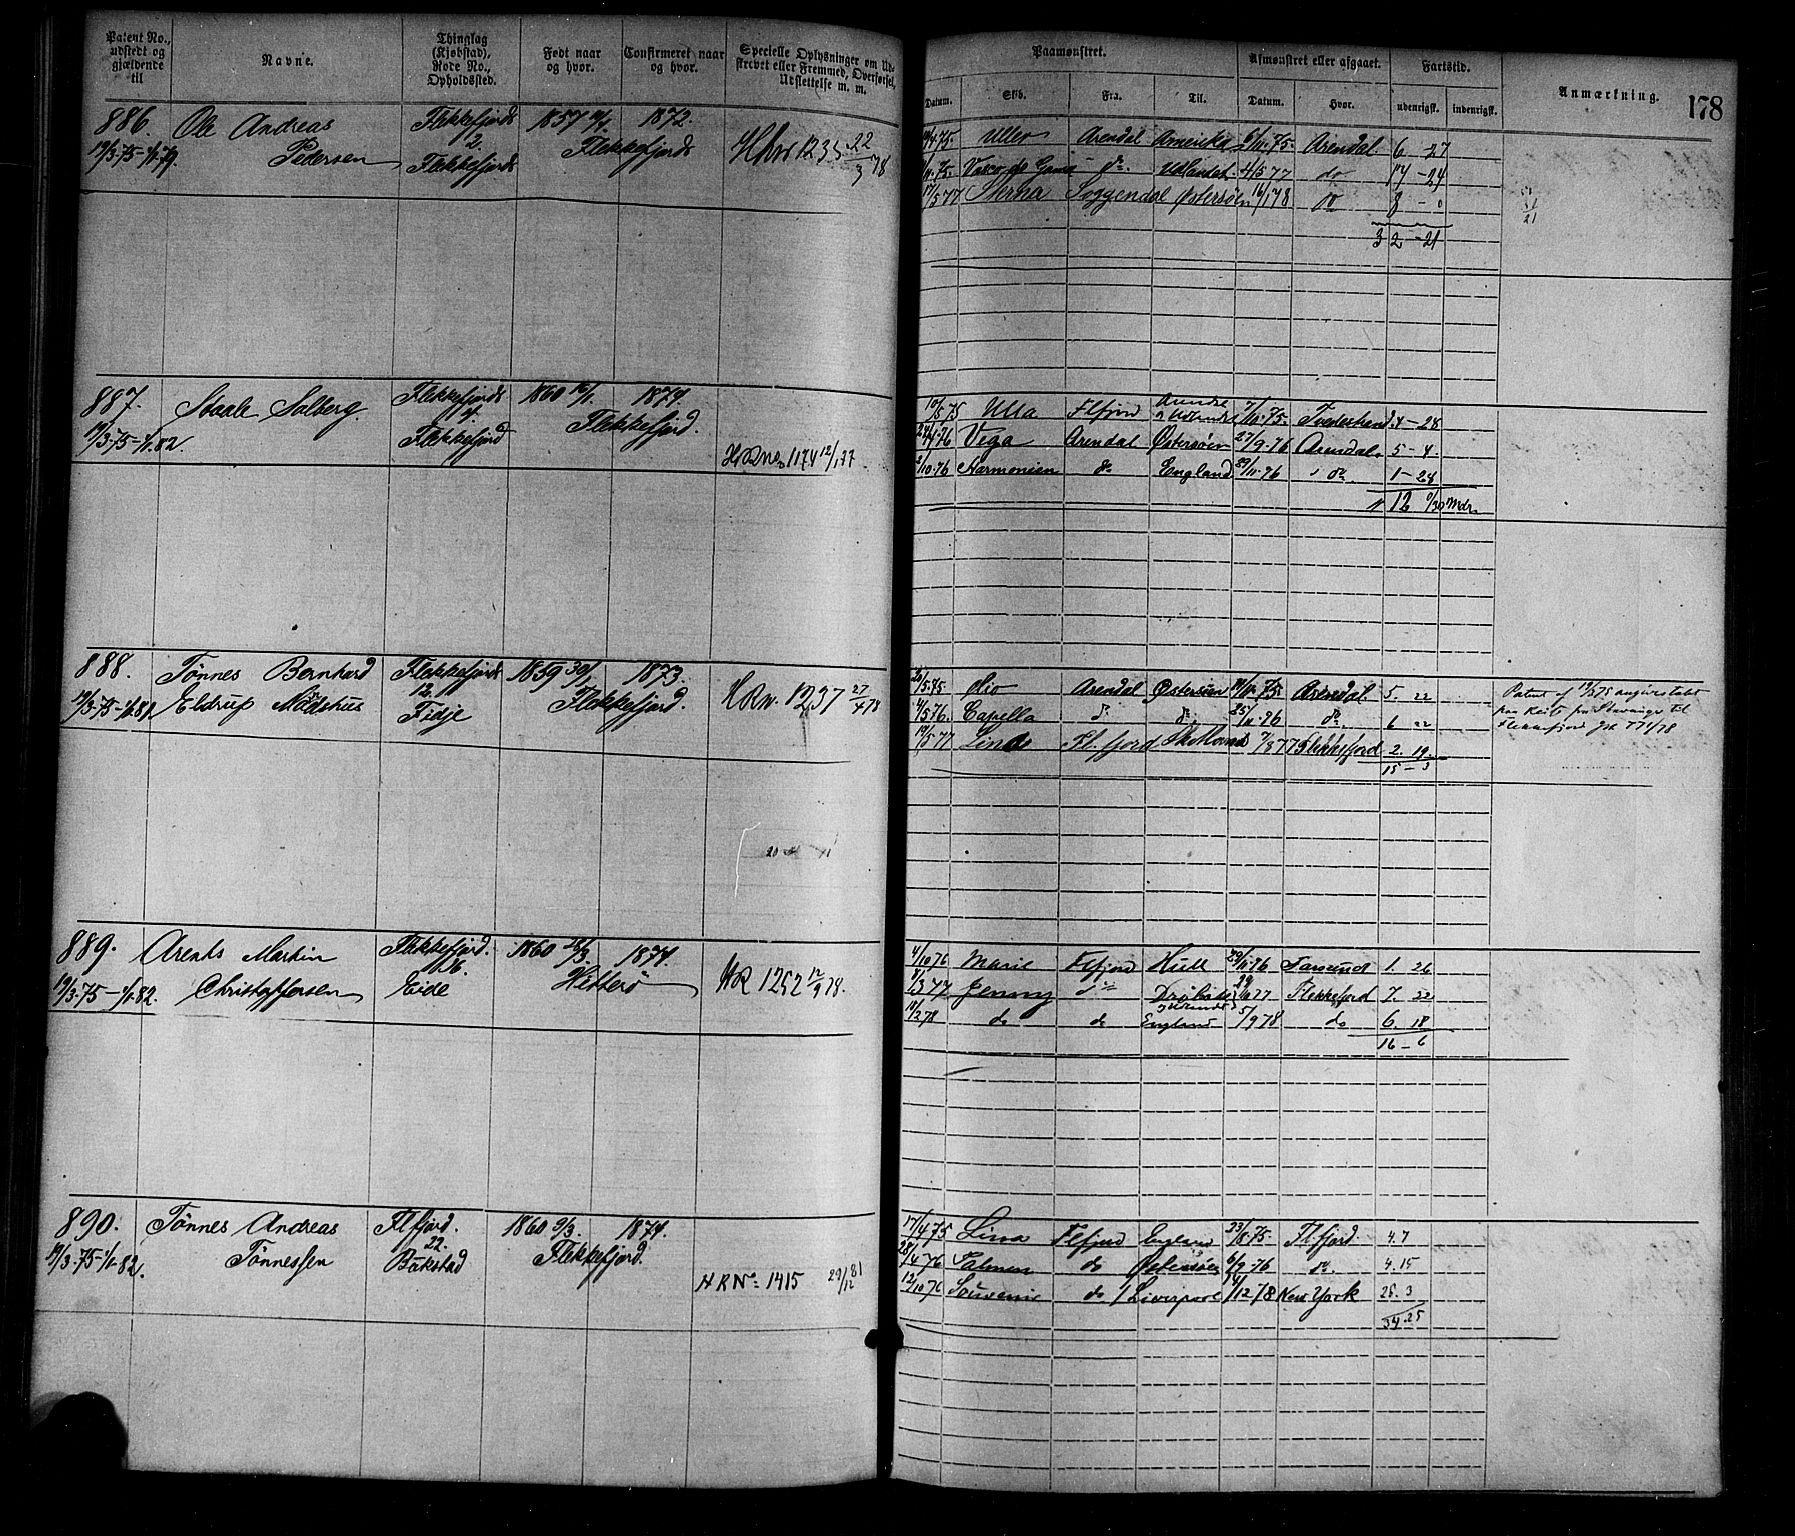 Patent No., udstedt og gjældende til
Navne.
Thinglag (Kjøbstad), Rode No., Opholdssted.
Født naar og hvor.
Confirmeret naar og hvor.
Specielle Oplysninger om Udskrevet eller Fremmed, Overførsel, Udslettelse m. m.
Paamønstret.
Afmønstret eller afgaaet.
Fartstid.
Anmærkning.
178
Datum. Skib. Fra. Til. Datum. Hvor. udenrigsk. indenrigsk.
886. Ole Andreas Flekkefjords 1857 1872.
19/3-75-1/1-79. Pedersen 2. Flekkefjords
Flekkefjords
HRNo 1235 22/3 78
75. Uller Arendal Amerika 6/11.75. Arendal. 6 - 27
75. Vasco de Gama do. Udlandet 4/5 77 do 17 - 24
17/5 77 Sterna Soggendal Østersøen 16/1 78 do 8 - 0
32 - 21
887. Staale Solberg Flekkefjords 1860 16/1. 1874
19/3-75-1/1.82. 4. Flekkefjord.
Flekkefjord
HRNo 1174 12/1 77
10/5 75 Ulla Flfjord Arendal 7/10.75. Tvedestrand. 4 - 28
& Udlandet
24/4 76 Vega Arendal Østersøen 27/9.76 Arendal. 5 - 4.
2/10.76 Harmonien do England 29/11.76 do. 1 - 28
12 0/30 Mdr.
888. Tønnes Bernhard Flekkefjords 1859 30/1 1873.
19/3-75-1/1.81 Eldrup Nødshus 12. Flekkefjord.
Fidje
HRN. 1237 27/4 78
20/5.75 Clio Arendal Østersøen 75. Arendal 5. 22
4/5 76. Capella do. do. 25/11.76 do. 6 22
19/5.77 Linde Fl.fjord Skotland 7/8 77 Flekkefjord 2. 19.
15 - 3
Patent af 19/3 75 angives tabt
paa Reise fra Stavanger til
Flekkefjord
889. Arents Martin Flekkefjord. 1860 28/3. 1874.
19/3.75-1/1.82. Christoffersen 26. Hitterø
Eide
HR 1252 12/9 78.
4/10 76 Marie Flfjord Hull 29/11.76 Farsund 1. 26
3 77 Jenny do Drøbak 77 Flekkefjord 7. 22
2 78 do do England 5/9 78 do 6. 18
16 - 6
890. Tønnes Andreas Flfjord. 1860 9/3. 1874.
19/3.75-1/1.82. Tønnessen 22. Flekkefjord.
Bakstad
HRNo. 1415 29/12 81
17/4 75 Lina Flfjord England 23/8.75. Flfjord 4. 7
28/4 76 do Østersøen 6/9.76 do. 4. 15
12/10 76 Souvenir do / Liverpool 14/12 78 New York 26. 3
34. 25